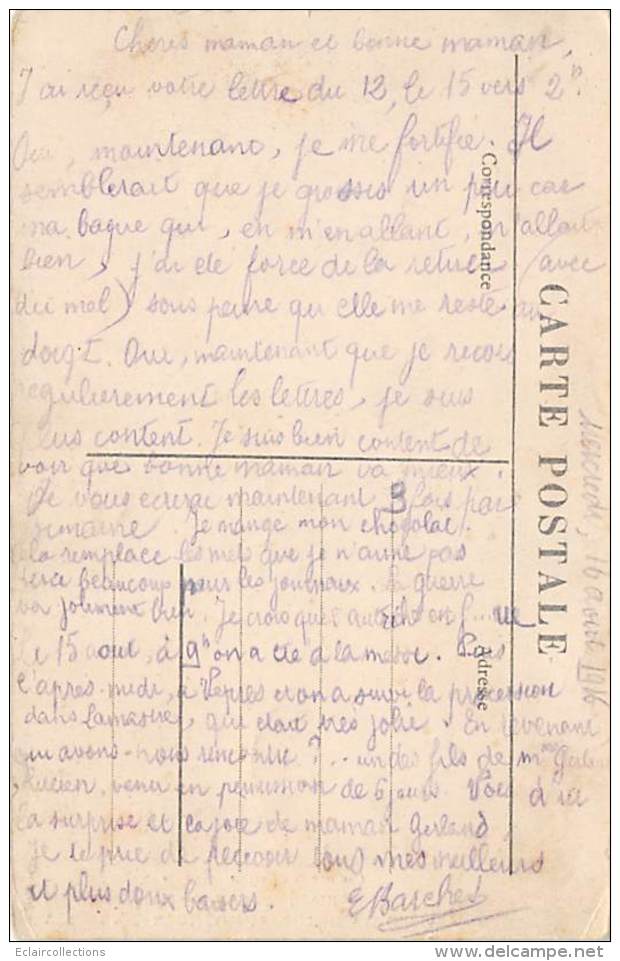 Chères maman et bonne maman,
J'ai reçu votre lettre du 12, le 15 vers 2h.
Oui, maintenant, je me fortifie. Il
semblerait que je grossis un peu car
ma bague qui, en m'en allant, m'allait
bien, j'ai été forcé de la retirer (avec
du mal) sous peine qu'elle me reste au
doigt. Oui, maintenant que je reçois
régulièrement les lettres, je suis
plus content. Je suis bien content de
voir que bonne maman va mieux.
Je vous écrirai maintenant 3 fois par
semaine. Je mange mon chocolat.
Cela remplace les mets que je n'aime pas
beaucoup pour les journaux. La guerre
va joliment bien. Je crois que
le 15 août, à 9h on a été à la messe. Puis
l'après-midi, à Vêpres et on a suivi la procession
dans Lamastre, qui était très jolie. En revenant
qui avons-nous rencontré ?.. un des fils de mme
Lucien, venu en permission de 6 jours. Vois d'ici
la surprise et la joie de maman Gerland.
Je te prie de recevoir tous mes meilleurs
et plus doux baisers. E Barchet
Correspondance
CARTE POSTALE
Adresse
Mercredi, 16 août 1916
Eclaircollections